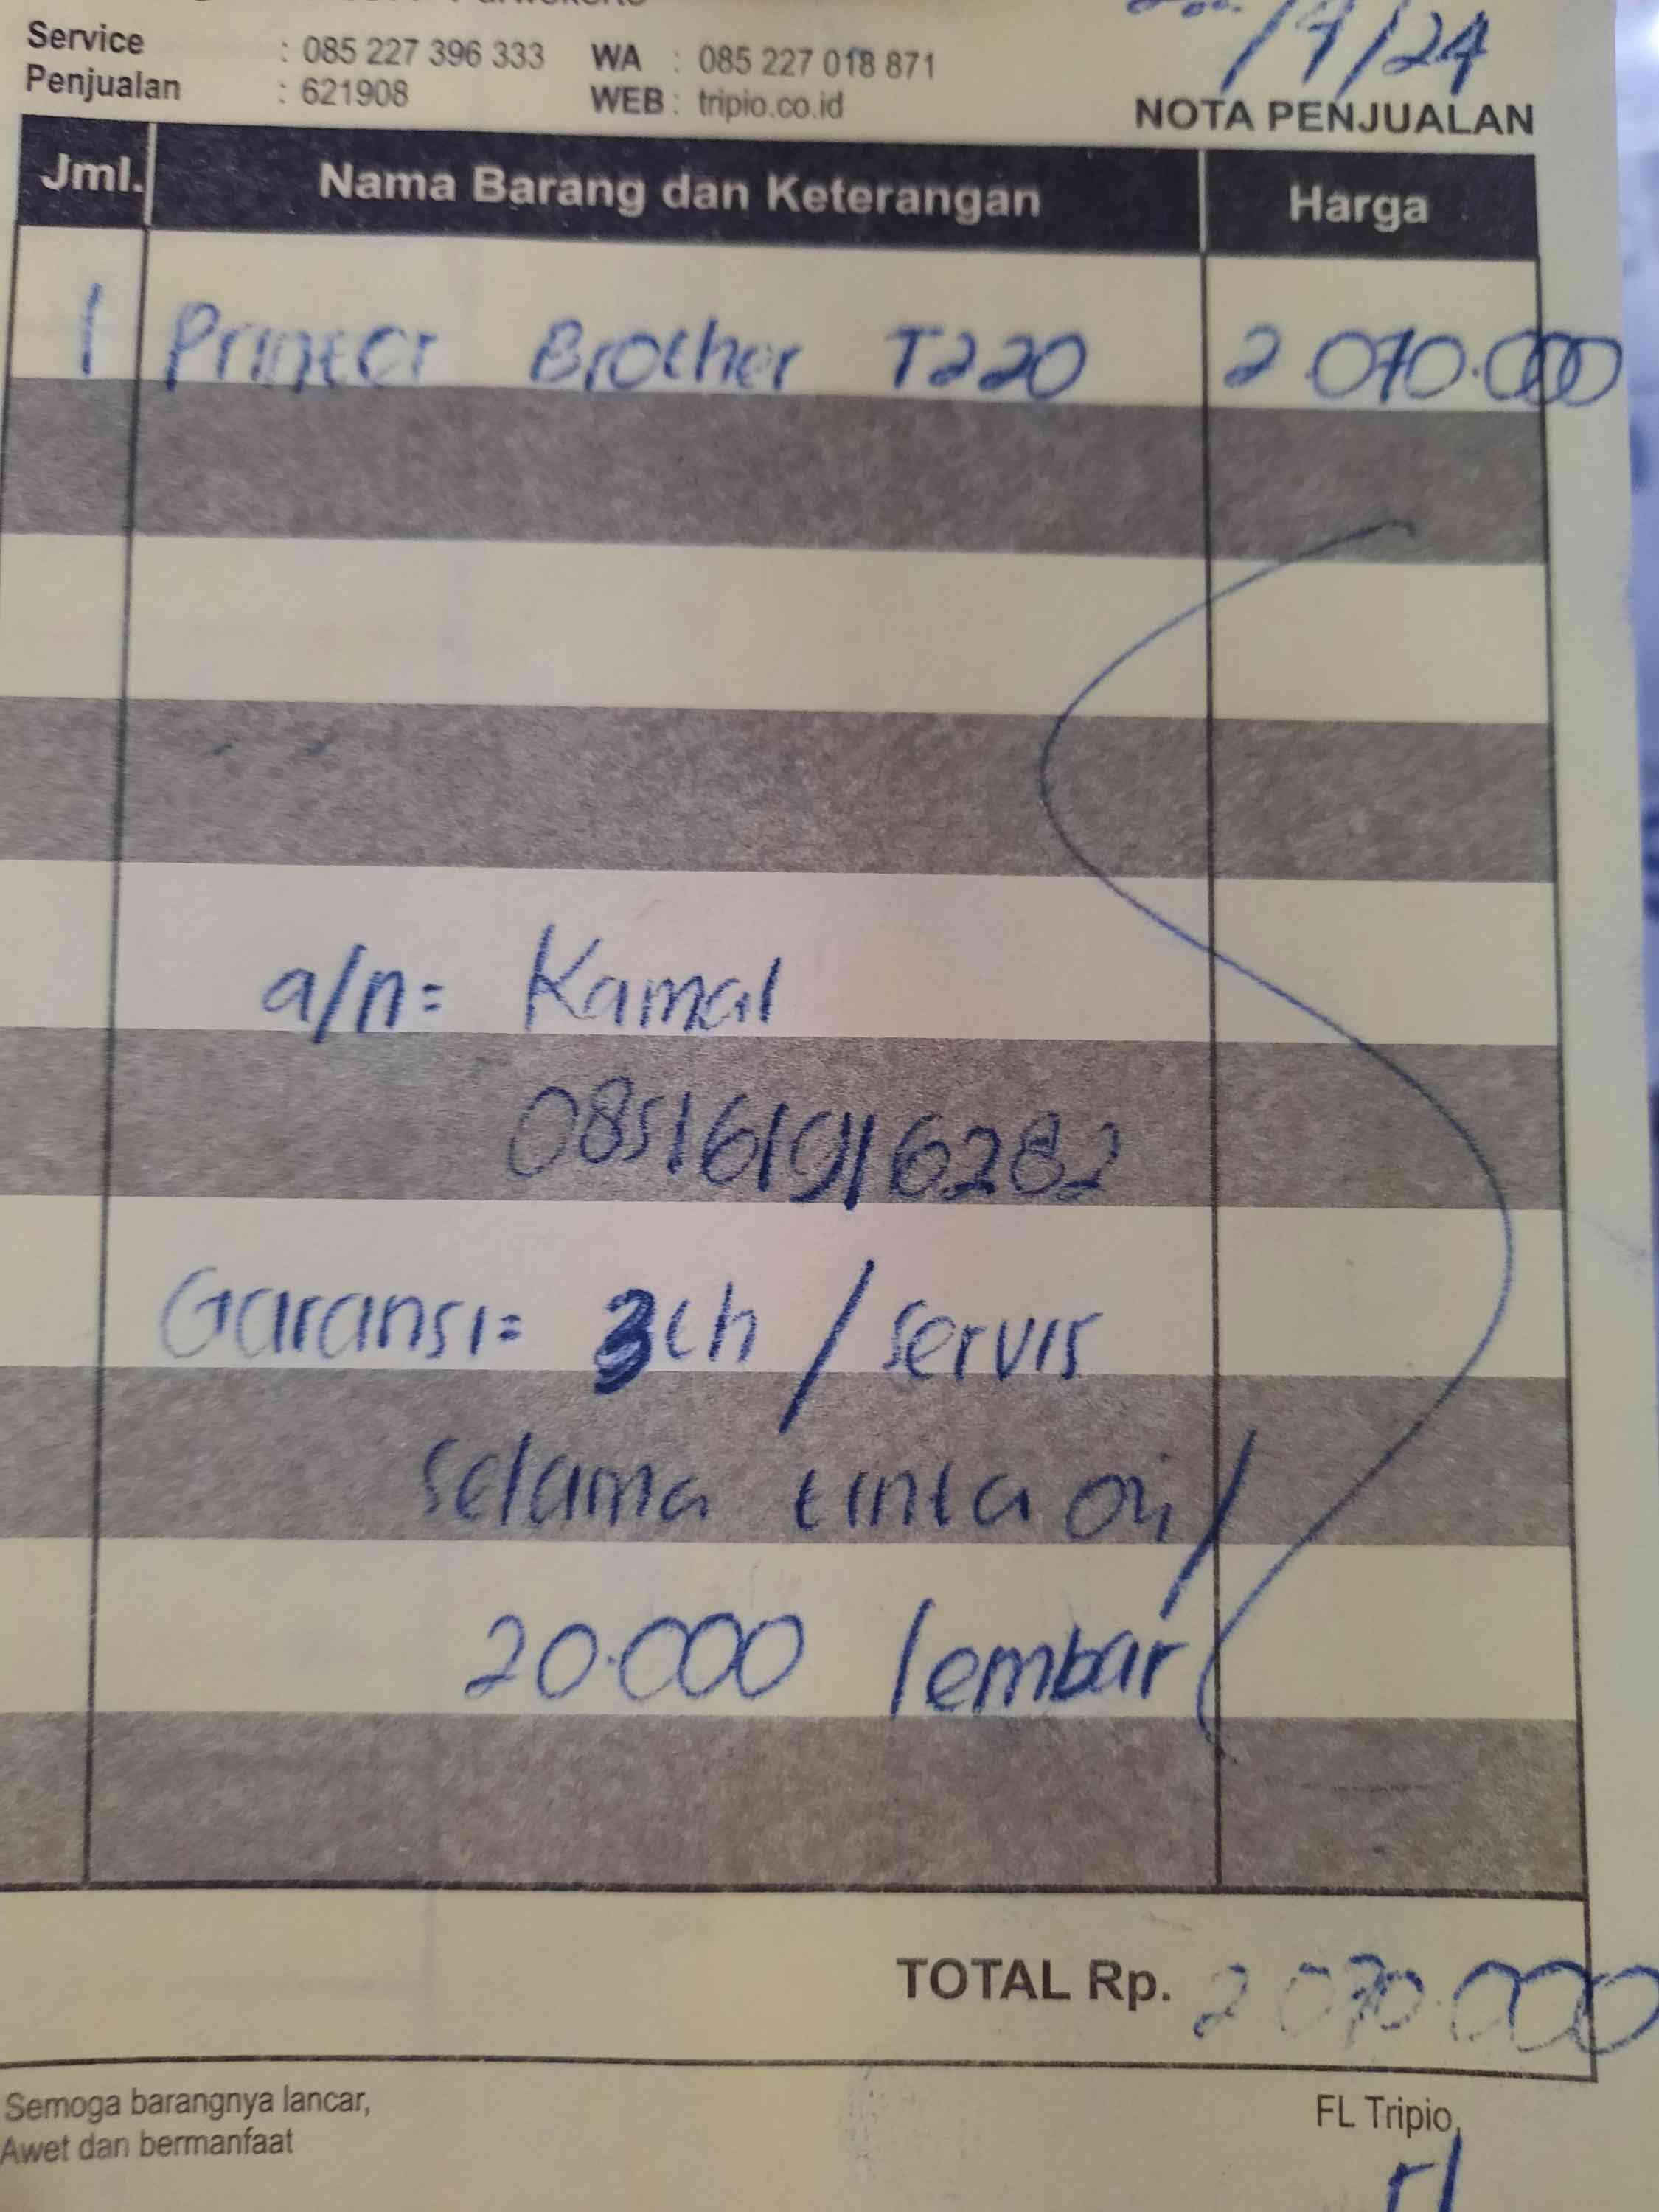 Service : 085 227 396 333 WA : 085 227 018 871
Penjualan : 621908 WEB : tripio.co.id
/24
NOTA PENJUALAN
Jml. Nama Barang dan Keterangan Harga
1 Printer Brother T220 2.070.000
a/n = Kamal
085161916282
Garansi = 3th / servis
selama tinta ori /
20.000 lembar
TOTAL Rp. 2.070.000
Semoga barangnya lancar,
Awet dan bermanfaat
FL Tripio,